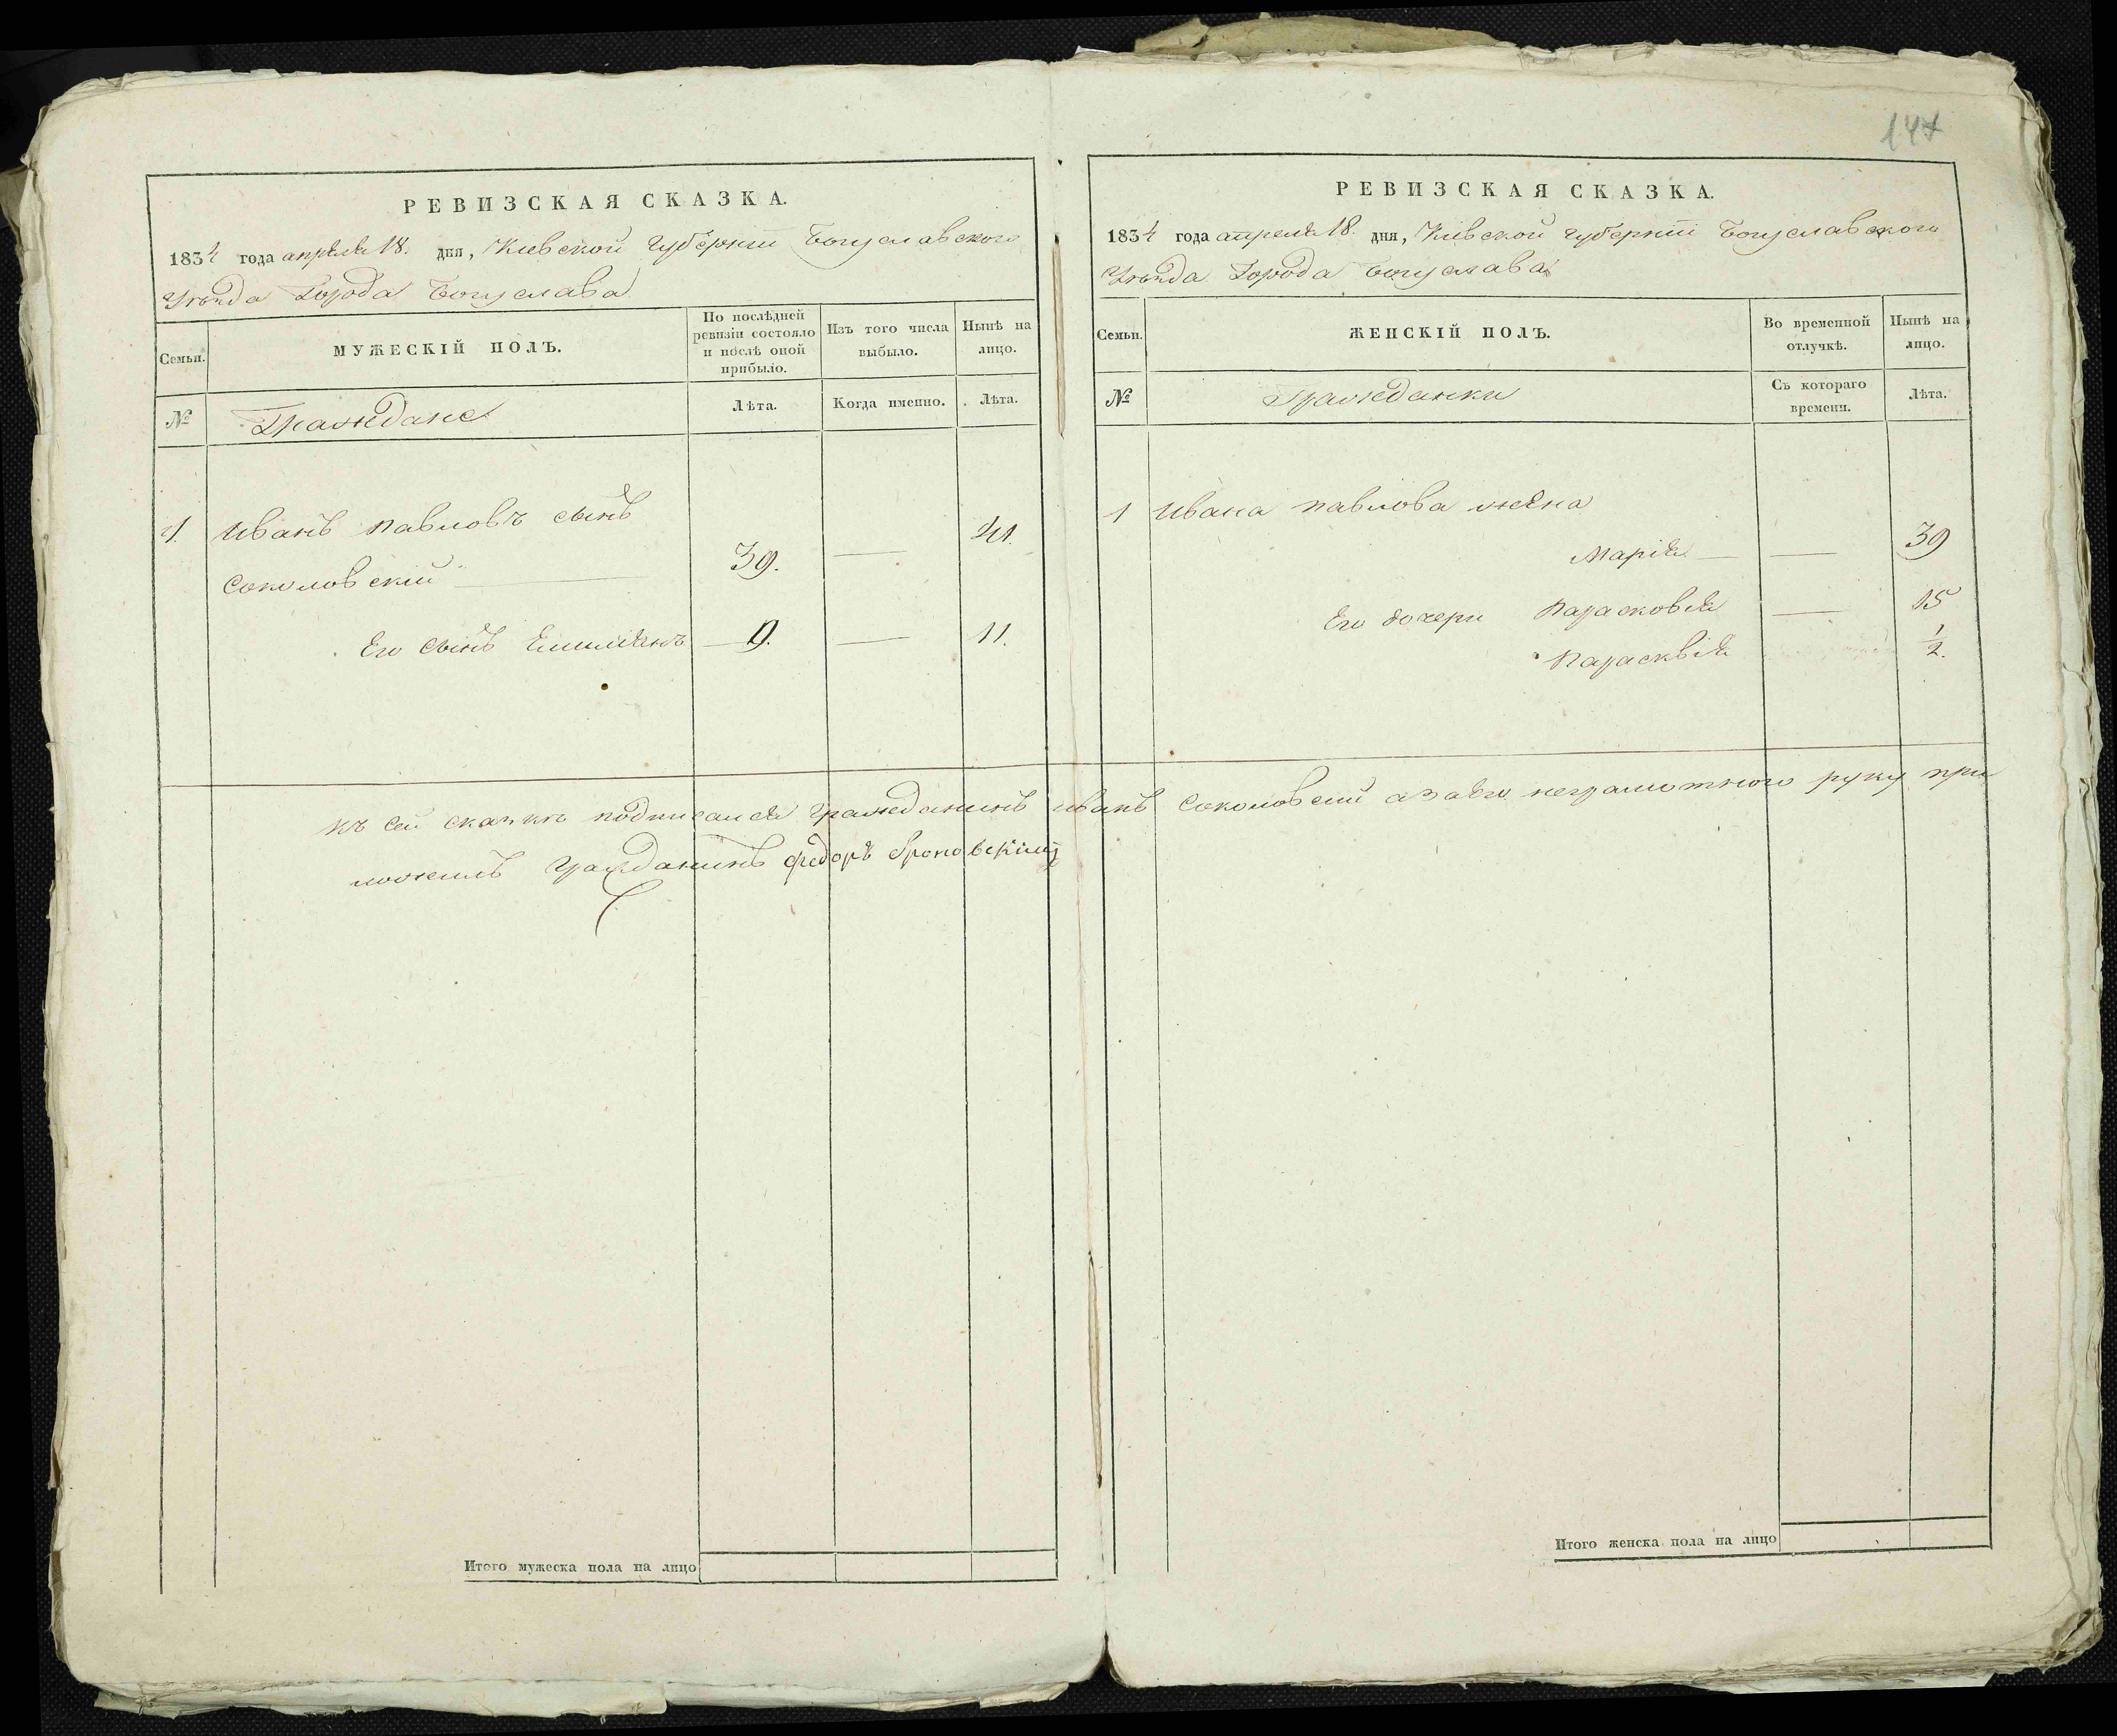 147
РЕВИЗСКАЯ СКАЗКА.
1834 года апреля 18. дня, Киевской губернии Богуславского
Уезда Города Богуслава
Семьи.
МУЖЕСКІЙ ПОЛЪ.
По послѣдней ревизіи состояло и послѣ оной прибыло.
Изъ того числа выбыло.
Нынѣ на лицо.
№
Граждане
Лѣта.
Когда именно.
Лѣта.
1. Иванъ Павловъ сынъ
Соколовскій 39. 41.
Его сынъ Емиліянъ 9. 11.
Итого мужеска пола на лицо
РЕВИЗСКАЯ СКАЗКА.
1834 года апреля 18. дня, Кіевской губерніи Богуславского
Уезда Города Богуслава
Семьи.
ЖЕНСКІЙ ПОЛЪ.
Во временной отлучкѣ.
Нынѣ на лицо.
№
Гражданки
Съ котораго времени.
Лѣта.
1 Ивана Павлова жена
Марія 39
Его дочери Парасковія 15
Парасквія 1/2.
Итого женска пола на лицо
къ сей скаске подписался гражданинъ иванъ Соколовский а за его неграмотного руку при
ложилъ гражданинъ федоръ